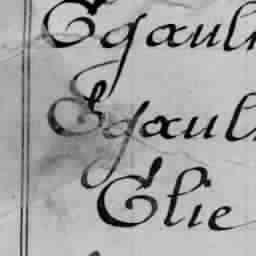 Egaul
Egaul
Elie